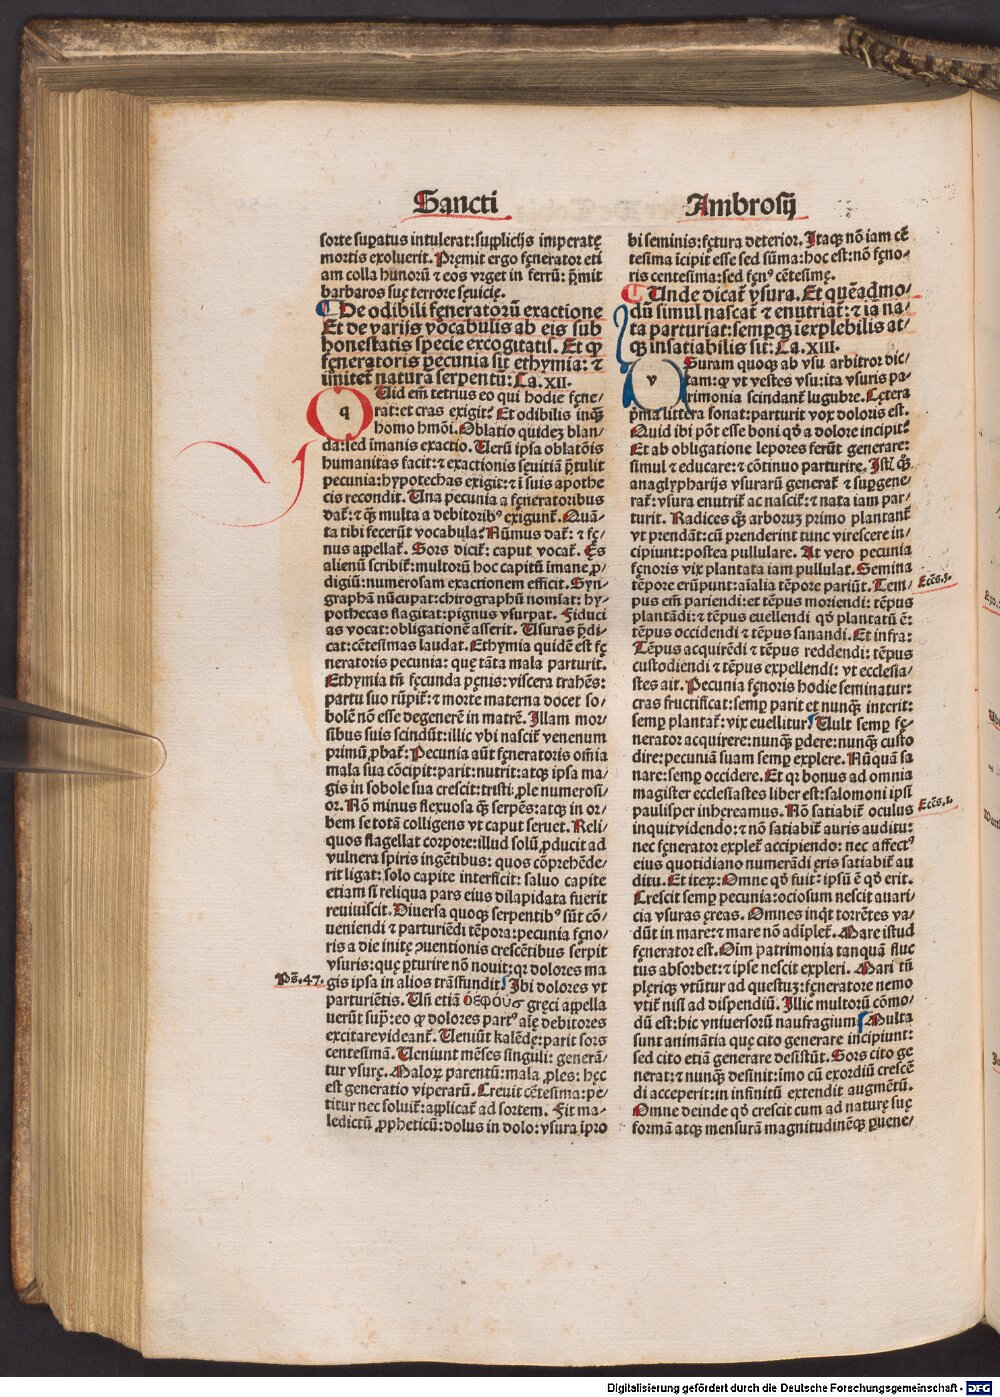 Sancti
Ambrosij
sorte supatus intulerat: supplicijs imperatę
mortis exoluerit. Pręmit ergo fęnerator eti
am colla hunorū ⁊ eos vrget in ferrū: p̄mit
barbaros suę terrore sęuicię.
De odibili fęneratorū exactione
Et de varijs vocabulis ab eis sub
honestatis specie excogitatis. Et qͥ
fęneratoris pecunia sit ethymia: ⁊
īmitet̄ natura serpentū: Ca. XII.
qUid em̄ tetrius eo qui hodie fęne/
rat: et cras exigit? Et odibilis inqͣ
homo hm̄oi. Oblatio quidez blan/
da: sed imanis exactio. Uerū ipsa oblatōis
humanitas facit: ⁊ exactionis sęuitiā p̄tulit
pecunia: hypothecas exigit: ⁊ ī suis apothe
cis recondit. Una pecunia a fęneratoribus
dat̄: ⁊ qͣ multa a debitoribꝰ exigunt̄. Quā/
ta tibi fecerūt vocabula? Nūmus dat̄: ⁊ fę/
nus appellat̄. Sors dicit̄: caput vocat̄. Ęs
alienū scribit̄: multorū hoc capitū imane ꝓ/
digiū: numerosam exactionem efficit. Syn/
graphā nūcupat: chirographū nomīat: hy/
pothecas flagitat: pignus vsurpat. Fiduci
as vocat: obligationē asserit. Usuras p̄di/
cat: cētesimas laudat. Ethymia quidē est fę
neratoris pecunia: quę tāta mala parturit.
Ethymia tn̄ fęcunda pęnis: viscera trahēs:
partu suo rūpit̄: ⁊ morte materna docet so/
bolē nō esse degenerē in matrē. Illam mor/
sibus suis scindūt: illic vbi nascit̄ venenum
primū ꝓbat̄: Pecunia aūt fęneratoris om̄ia
mala sua cōcipit: parit: nutrit: atqꝫ ipsa ma/
gis in sobole sua crescit: tristi ꝓle numerosi/
or. Nō minus flexuosa qͣ serpēs: atqꝫ in or/
bem se totā colligens vt caput seruet. Reli/
quos flagellat corpore: illud solū ꝓducit ad
vulnera spiris ingētibus: quos cōprehēde/
rit ligat: solo capite interficit: saluo capite
etiam si reliqua pars eius dilapidata fuerit
reuiuiscit. Diuersa quoqꝫ serpentibꝰ sūt cō/
ueniendi ⁊ parturiēdi tēpora: pecunia fęno/
ris a die initę ꝯuentionis crescētibus serpit
vsuris: quę pturire nō nouit: qꝛ dolores ma
Ps̄. 47.
gis ipsa in alios trāsfundit. Ibi dolores vt
parturiētis. Un̄ etiā gręci appella
uerūt supͣ: eo qͥ dolores partꝰ aīę debitores
excitare videant̄. Ueniūt kalēdę: parit sors
centesimā. Ueniunt mēses singuli: generā/
tur vsurę. Malorꝝ parentū: mala ꝓles: hęc
est generatio viperarū. Creuit cētesima: pe/
titur nec soluit̄: applicat̄ ad sortem. Fit ma/
ledictū ꝓpheticū: dolus in dolo: vsura īpro
bi seminis: fętura deterior. Itaqꝫ nō iam cē
tesima īcipit esse sed sūma: hoc est: nō fęno/
ris centesima: sed fenꝰ cētesimę.
Unde dicat̄ vsura. Et quēadmo/
dū simul nascat̄ ⁊ enutriat̄: ⁊ iā na/
ta parturiat: semperqꝫ īexplebilis at/
qꝫ insatiabilis sit: Ca. XIII.
vSuram quoqꝫ ab vsu arbitror dic/
tam: qͥ vt vestes vsu: ita vsuris pa/
trimonia scindant̄ lugubre. Cętera
p̄ma littera sonat: parturit vox doloris est.
Quid ibi pōt esse boni qd̄ a dolore incipit?
Et ab obligatione lepores ferūt generare:
simul ⁊ educare: ⁊ cōtinuo parturire. Ist̄ qͦꝫ
anaglypharijs vsurarū generat̄ ⁊ supgene/
rat̄: vsura enutrit̄ ac nascit̄: ⁊ nata iam par/
turit. Radices qͦꝫ arboruꝫ primo plantant̄
vt prendant: cū prenderint tunc virescere in/
cipiunt: postea pullulare. At vero pecunia
fęnoris vix plantata iam pullulat. Semina
tēpore erūpunt: aīalia tēpore pariūt. Tem/
Eccs̄. 3.
pus em̄ pariendi: et tēpus moriendi: tēpus
plantādi: ⁊ tēpus euellendi qd̄ plantatū ē:
tēpus occidendi ⁊ tēpus sanandi. Et infra:
Tēpus acquirēdi ⁊ tēpus reddendi: tēpus
custodiendi ⁊ tēpus expellendi: vt ecclesia/
stes ait. Pecunia fęnoris hodie seminatur:
cras fructificat: semp parit et nunqͣ interit:
semp plantat̄: vix euellitur. Uult semp fę/
nerator acquirere: nunqͣ pdere: nunqͣ custo
dire: pecuniā suam semp explere. Nūquā sa
nare: semp occidere. Et qꝛ bonus ad omnia
magister ecclesiastes liber est: salomoni ipsi
paulisper inhęreamus. Nō satiabit̄ oculus
Eccs̄. 1.
inquit videndo: ⁊ nō satiabit̄ auris auditu:
nec fęnerator explet̄ accipiendo: nec affectꝰ
eius quotidiano numerādi ęris satiabit̄ au
ditu. Et iterꝝ: Omne qd̄ fuit: ipsū ē qd̄ erit.
Crescit semp pecunia: ociosum nescit auari/
cia vsuras ęreas. Omnes inqͥt torrētes va/
dūt in mare: ⁊ mare nō adīplet̄. Mare istud
fęnerator est. Oīm patrimonia tanquā fluc
tus absorbet: ⁊ ipse nescit expleri. Mari tn̄
pleriqꝫ vtūtur ad questuꝫ: fęneratore nemo
vtit̄ nisi ad dispendiū. Illic multorū cōmo/
dū est: hic vniuersorū naufragium. Multa
sunt animātia quę cito generare incipiunt:
sed cito etiā generare desistūt. Sors cito ge
nerat: ⁊ nunqͣ desinit: īmo cū exordiū crescē
di acceperit: in infinitū extendit augmētū.
Omne deinde qd̄ crescit cum ad naturę suę
formā atqꝫ mensurā magnitudinēqꝫ puene/
Digitalisierung gefördert durch die Deutsche Forschungsgemeinschaft - DFG